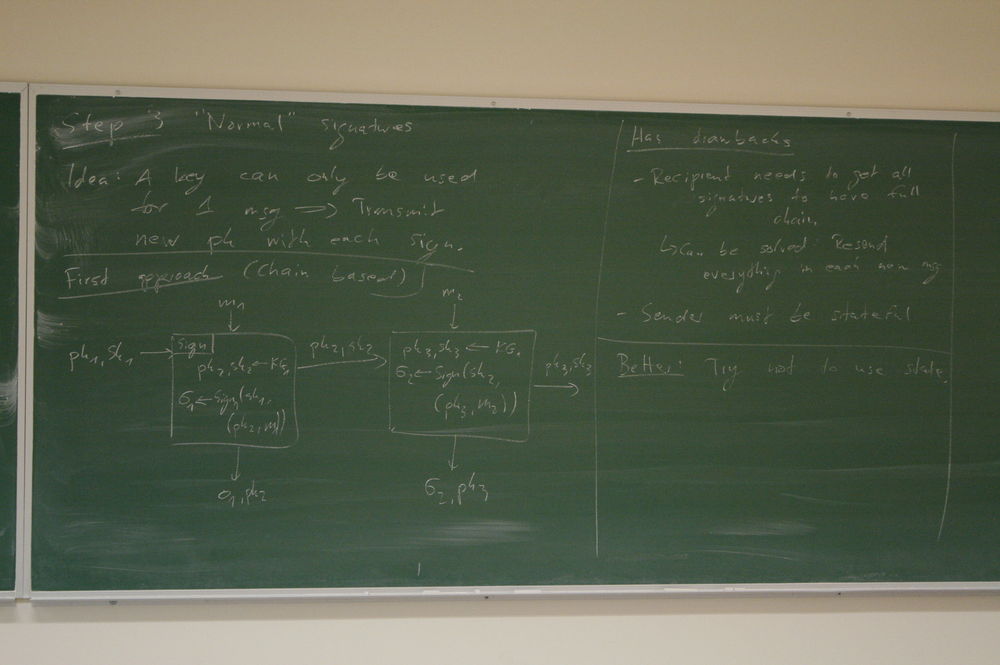 Step 3 "Normal" signatures
Idea: A key can only be used
for 1 msg => Transmit
new pk with each sign.
First approach (Chain based)
m₁
pk₁, sk₁
Sign
pk₂, sk₂ ← KG₁
σ₁ ← Sign(sk₁,
(pk₂, m₁))
σ₁, pk₂
pk₂, sk₂
m₂
pk₃, sk₃ ← KG₁
σ₂ ← Sign(sk₂,
(pk₃, m₂))
σ₂, pk₃
pk₃, sk₃
Has drawbacks
- Recipient needs to get all
signatures to have full
chain.
↳ Can be solved: Resend
everything in each new msg
- Sender must be stateful
Better: Try not to use state.